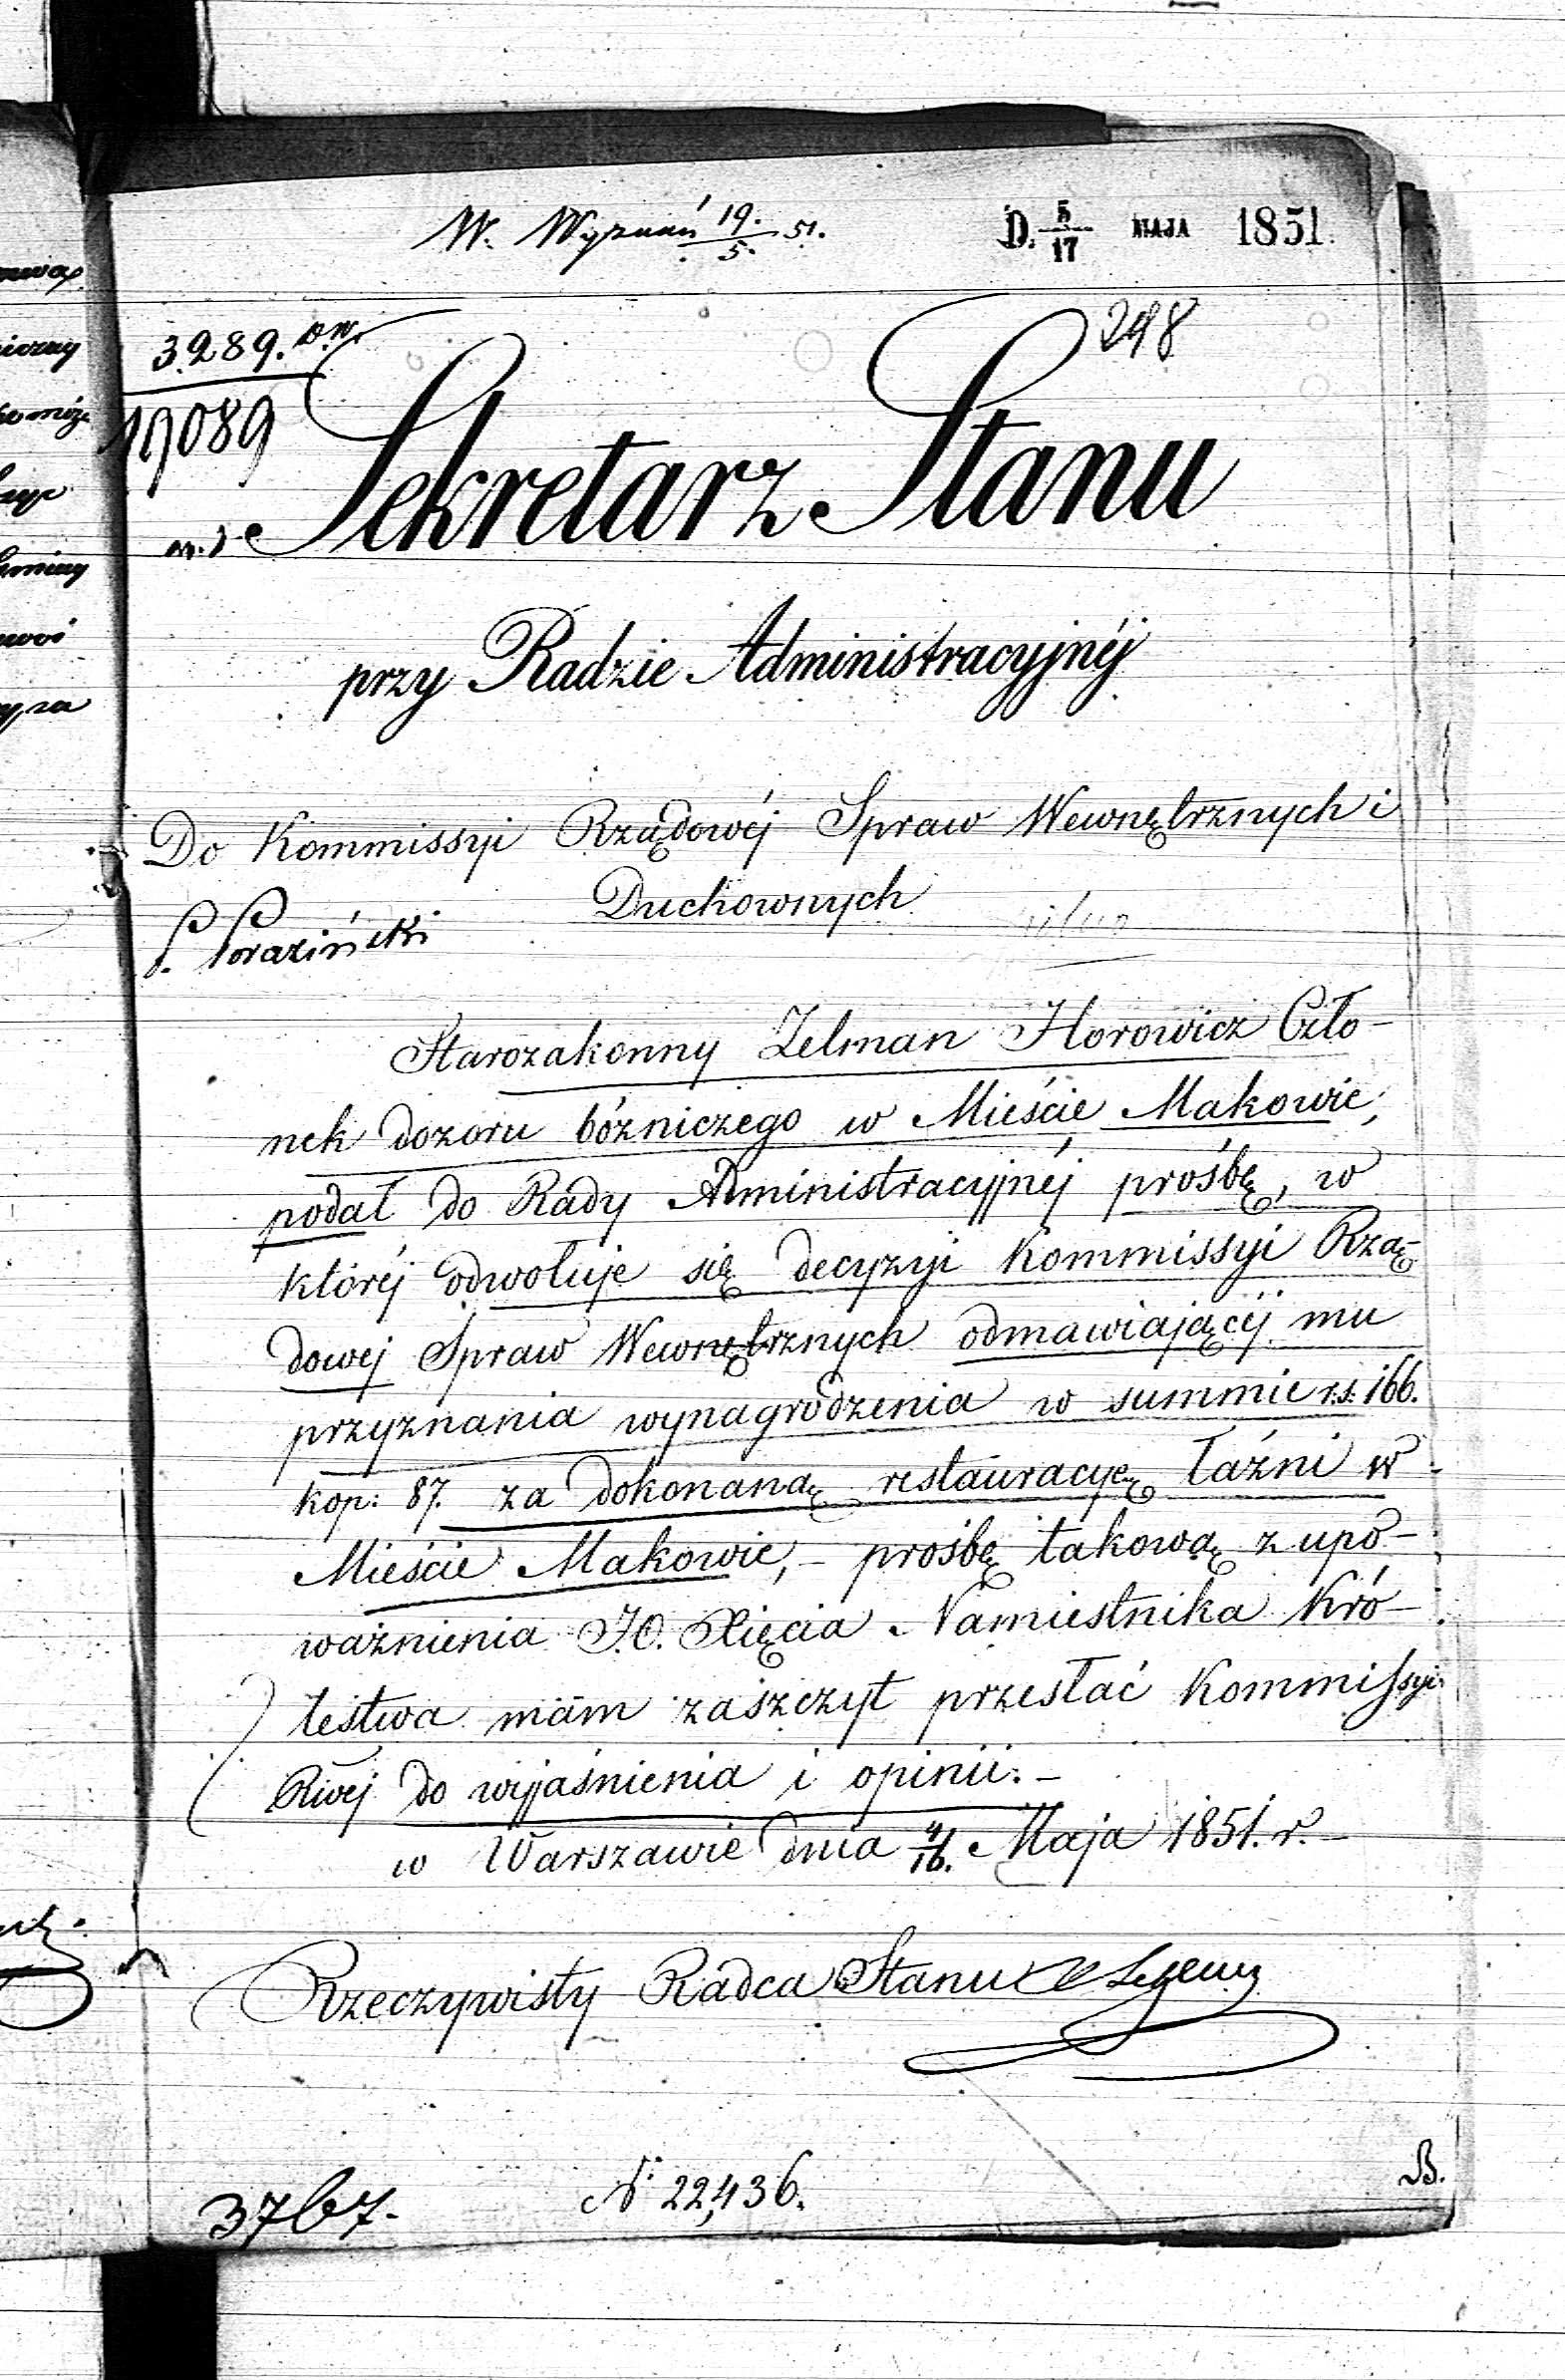 W. Wyznań 19/5 51.
D. 5/17 MAJA 1851.
248
3289. D.W.
17089
Sekretarz Stanu
przy Radzie Administracyjnéj
Do Kommissyi Rządowéj Spraw Wewnętrznych i
Duchownych
P. Poraziński
Starozakonny Zelman Horowicz Czło-
nek dozoru bóżniczego w Mieście Makowie,
podał do Rady Administracyjnéj prośbę, w
któréj odwołuje się decyzyi Kommissyi Rzą-
dowej Spraw Wewnętrznych odmawiającéj mu
przyznania wynagrodzenia w summie r.s. 166.
kop: 87. za dokonaną restauracyę łaźni w
Mieście Makowie, – prośbę takową z upo-
ważnienia J.O. Xięcia Namiestnika Kró-
lestwa mam zaszczyt przesłać Kommissyi
Rwej do wyjaśnienia i opinii. –
w Warszawie dnia 4/16. Maja 1851. r. –
Rzeczywisty Radca Stanu
3767.
N 22,436.
B.